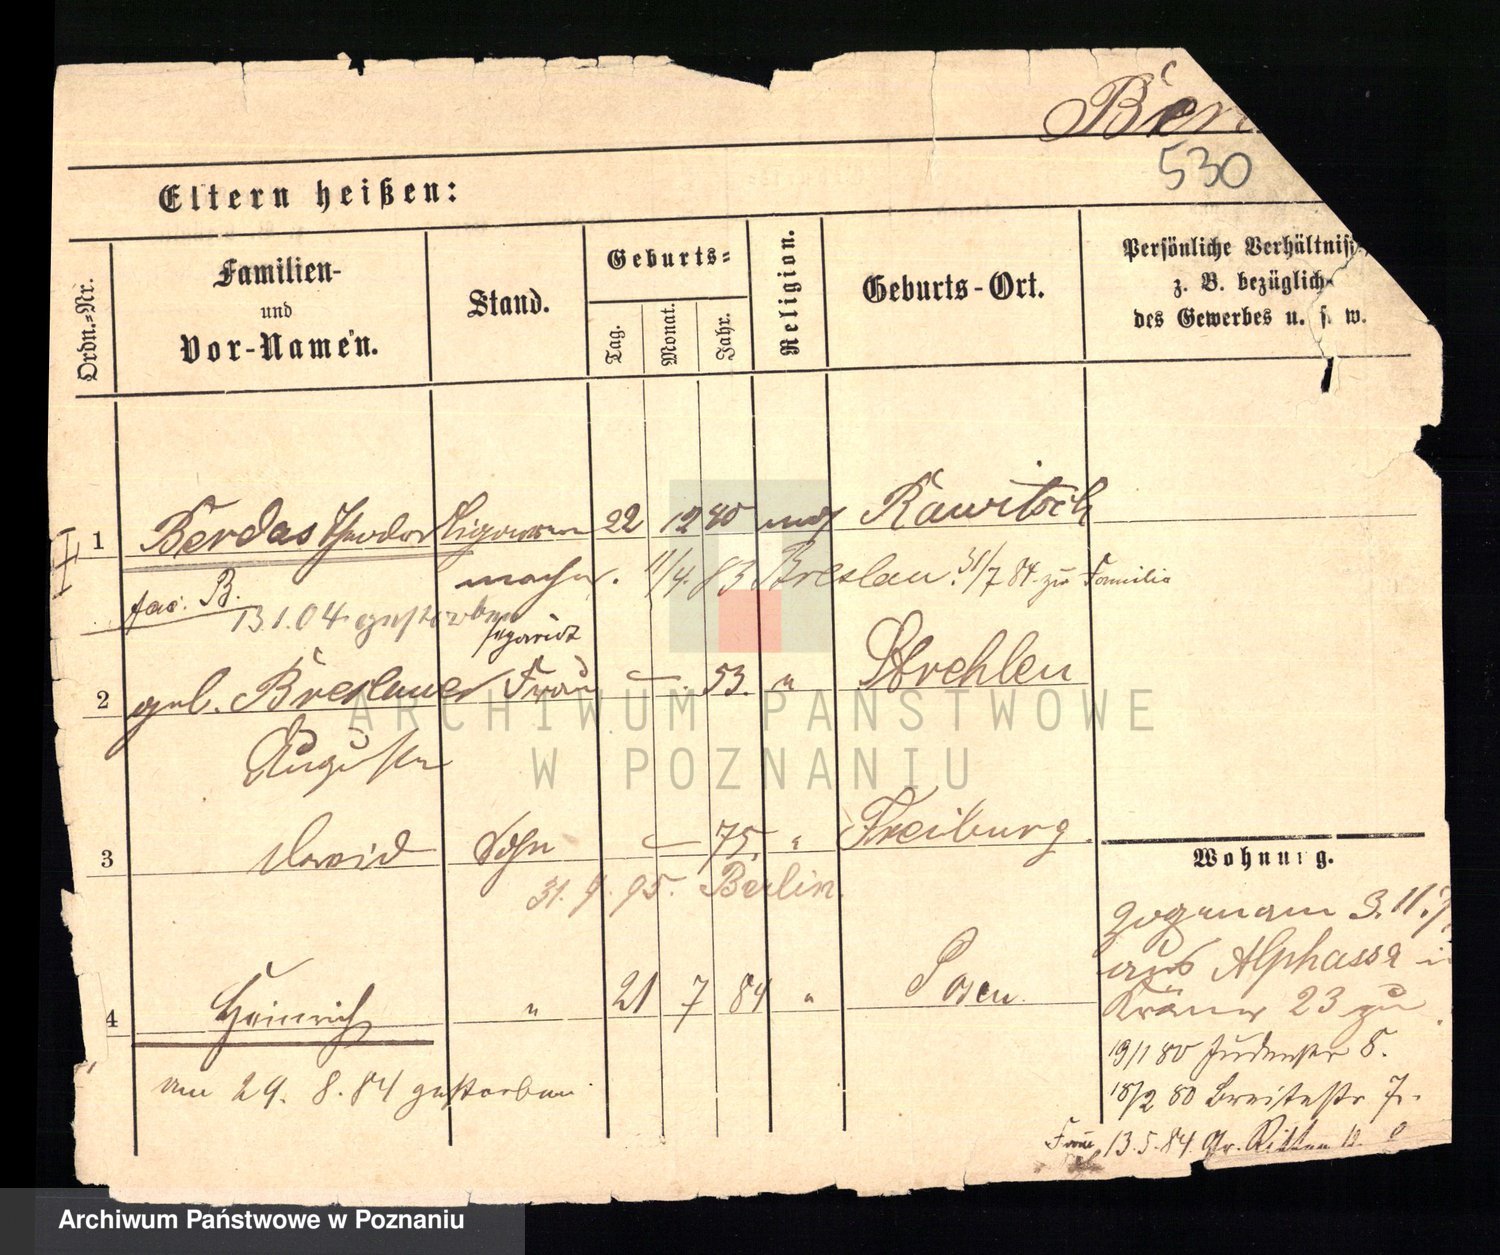 Ber
530
Eltern heißen:
Ordn.-Nr.
Familien-
und
Vor-Namen.
Stand.
Geburts-
Tag.
Monat.
Jahr.
Religion.
Geburts-Ort.
Persönliche Verhältniss
z. B. bezüglich
des Gewerbes u. s. w.
1 Berdas Theodor Cigarren 22 12 40 mos Rawitsch
macher. 11/4. 83 Breslau. 31/7 84. zur Familie
fac. B.
13.1.04. gestorben
separirt
2 geb. Breslauer Frau — 53. " Strehlen
Auguste
3 David Sohn — 75. " Freiburg.
31. 9. 95. Berlin.
4 Heinrich " 21 7 84 " Posen.
am 29. 8. 84 gestorben
Wohnung.
Zogen am 3. 11. 7
aus
Krämer 23 zu
19/1 80 Judenstr 8.
18/2 80 Breitestr 7.
Frau 13. 5. 84. Gr. Ritter
ARCHIWUM PAŃSTWOWE
W POZNANIU
Archiwum Państwowe w Poznaniu